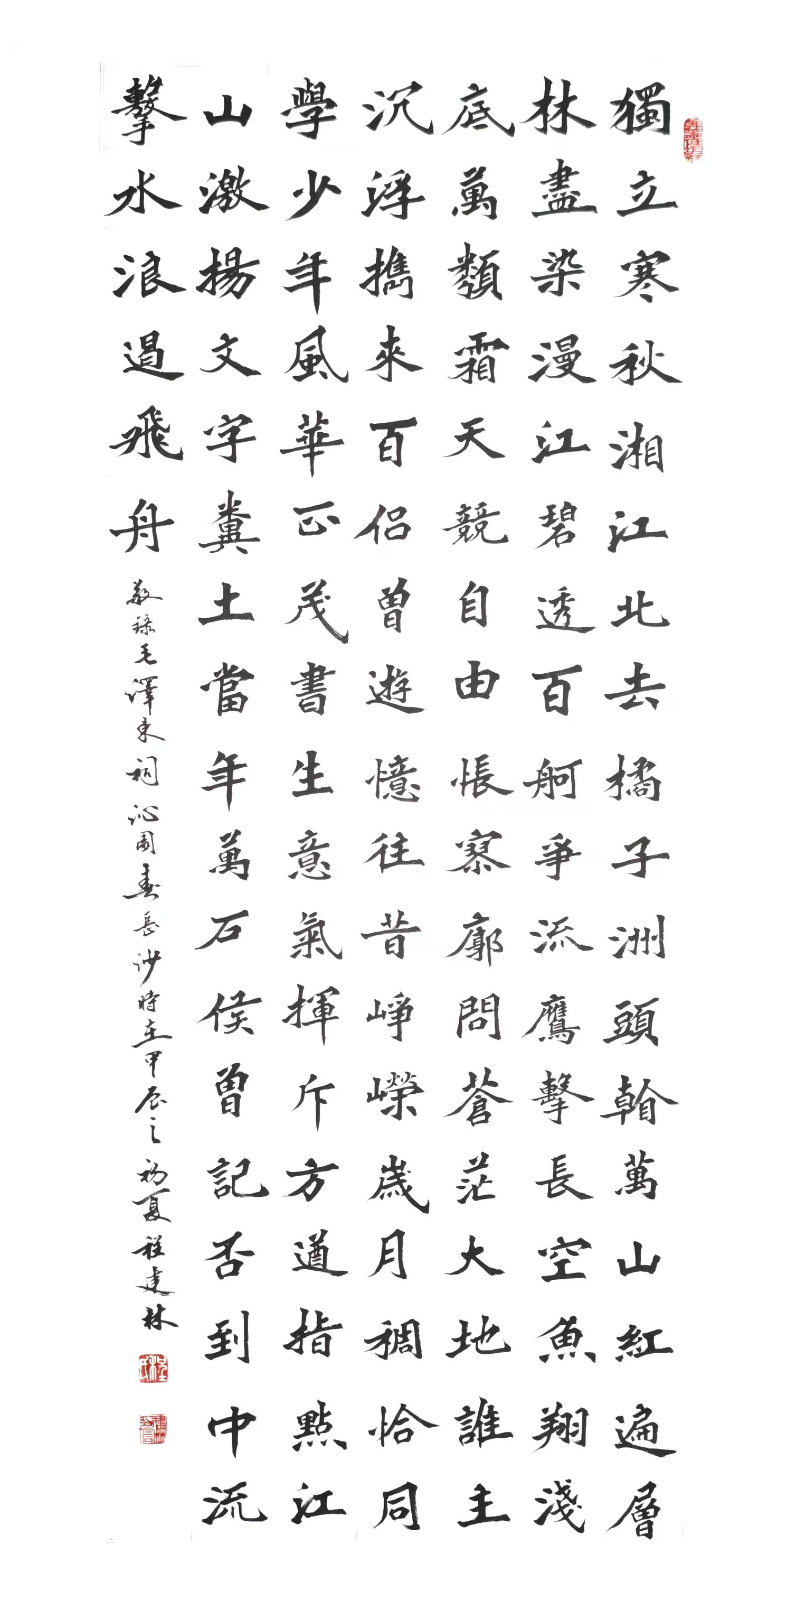 獨立寒秋湘江北去橘子洲頭看萬山紅遍層
林盡染漫江碧透百舸爭流鷹擊長空魚翔淺
底萬類霜天競自由悵寥廓問蒼茫大地誰主
沉浮擕來百侶曾遊憶往昔崢嶸歲月稠恰同
學少年風華正茂書生意氣揮斥方遒指點江
山激揚文字糞土當年萬石侯曾記否到中流
擊水浪遏飛舟
敬錄毛澤東詞沁園春長沙時在甲辰之初夏程建林